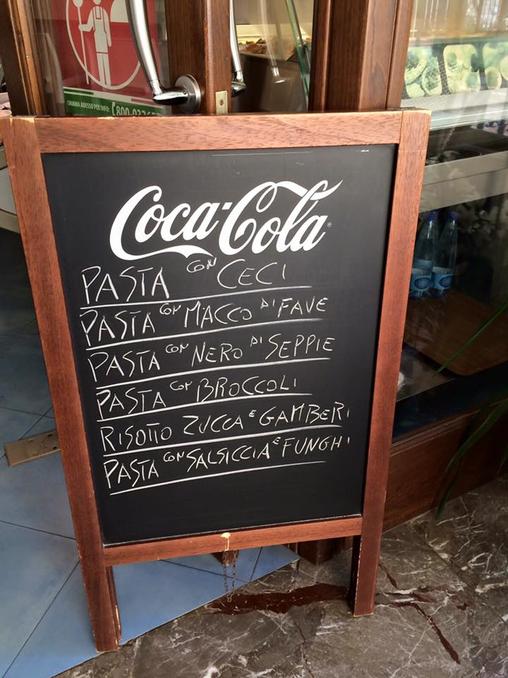 Coca-Cola
PASTA CON CECI
PASTA CON MACCO DI FAVE
PASTA CON NERO DI SEPPIE
PASTA CON BROCCOLI
RISOTTO ZUCCA E GAMBERI
PASTA CON SALSICCIA E FUNGHI